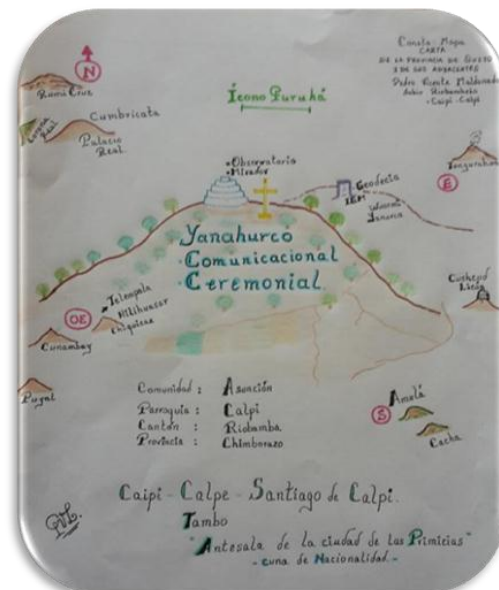 N
Rumi Cruz
Corona
Real
Cumbricata
Palacio
Real
Ícono Puruhá
Consta - Mapa
CARTA
DE LA PROVINCIA DE QUITO
Y DE SUS ADYACENTES
Pedro Vicente Maldonado
Sabio Riobambeño
- Caipi - Calpi
Tungurahua
E
•Observatorio
•Mirador
Geodecia
IGM
Yanahurco
•Comunicacional
•Ceremonial
OE
Cunambay
Puyal
Comunidad : Asunción
Parroquia : Calpi
Cantón : Riobamba
Provincia : Chimborazo
S
Amulá
Cacha
Caipi - Calpe - Santiago de Calpi.
Tambo
"Antesala de la ciudad de las Primicias"
- cuna de Nacionalidad. -